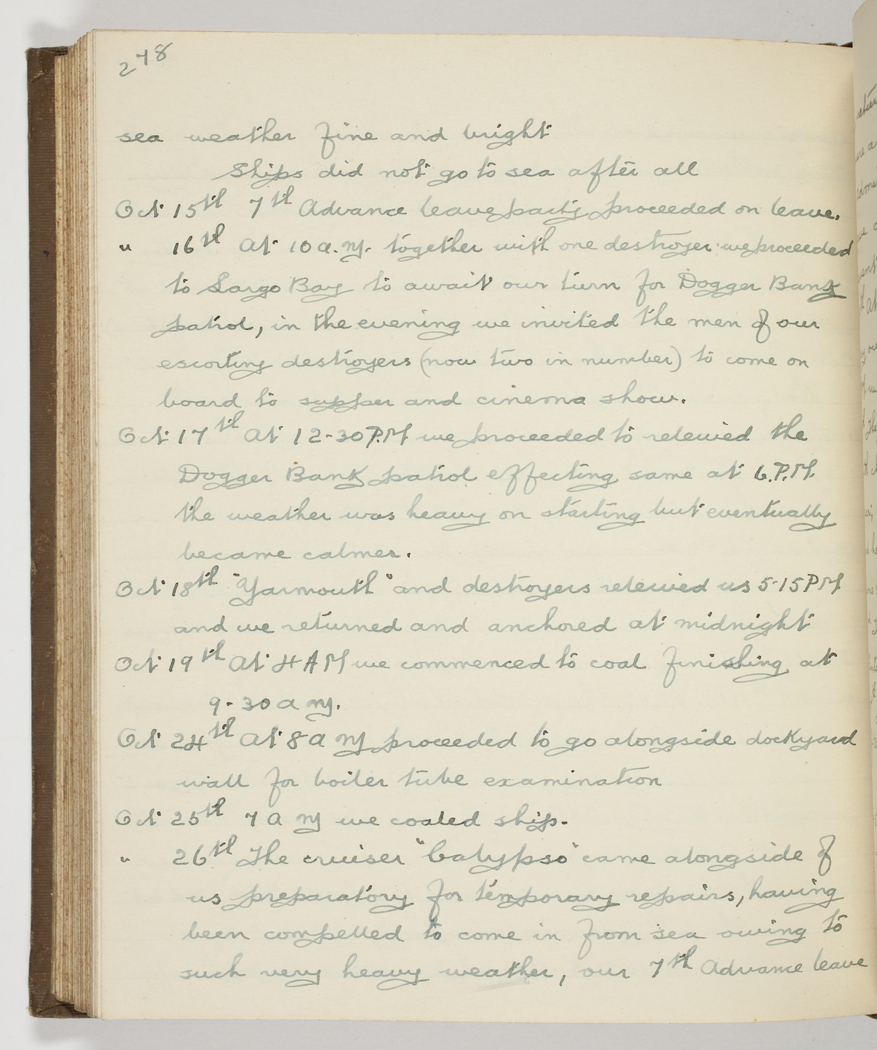 278
sea weather fine and bright
Ships did not go to sea after all
Oct 15th 7th Advance leave party proceeded on leave.
" 16th At 10 a.m. together with one destroyer we proceeded
to Largo Bay to await our turn for Dogger Bank
patrol, in the evening we invited the men of our
escorting destroyers (now two in number) to come on
board to supper and cinema show.
Oct 17th At 12-30 P.M we proceeded to releived the
Dogger Bank patrol effecting same at 6.P.M.
the weather was heavy on starting but eventually
became calmer.
Oct 18th "Yarmouth" and destroyers releived us 5-15 PM
and we returned and anchored at midnight
Oct 19th At 4 AM we commenced to coal finishing at
9-30 a m.
Oct 24th At 8 a m proceeded to go alongside dockyard
wall for boiler tube examination
Oct 25th 7 a m we coaled ship.
" 26th The cruiser "Calypso" came alongside of
us preparatory for temporary repairs, having
been compelled to come in from sea owing to
such very heavy weather, our 7th Advance leave